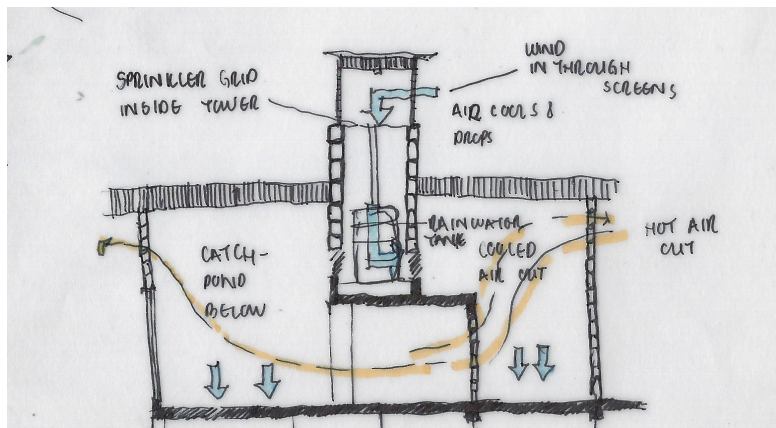 SPRINKLER GRID
INSIDE TOWER
WIND
IN THROUGH
SCREENS
AIR COOLS &
DROPS
RAINWATER
TANK
COOLED
AIR OUT
HOT AIR
OUT
CATCH-
POND
BELOW